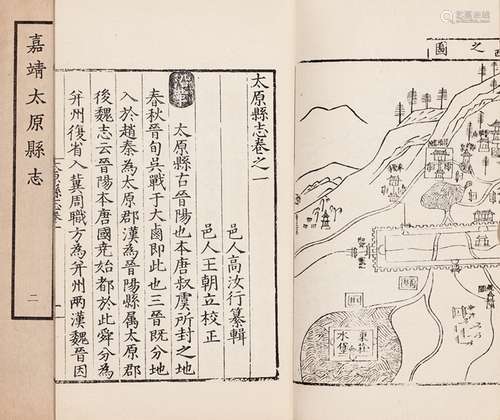 嘉靖太原縣志
二
太原縣志卷之一
邑人高汝行纂輯
邑人王朝立校正
太原縣古晉陽也本唐叔虞所封之地
春秋晉荀吳戰于大鹵即此也三晉既分地
入於趙秦為太原郡漢為晉陽縣属太原郡
後魏志云晉陽本唐國堯始都於此舜分為
并州復省入冀周職方為并州兩漢魏晉因
之圖
東社
水堡